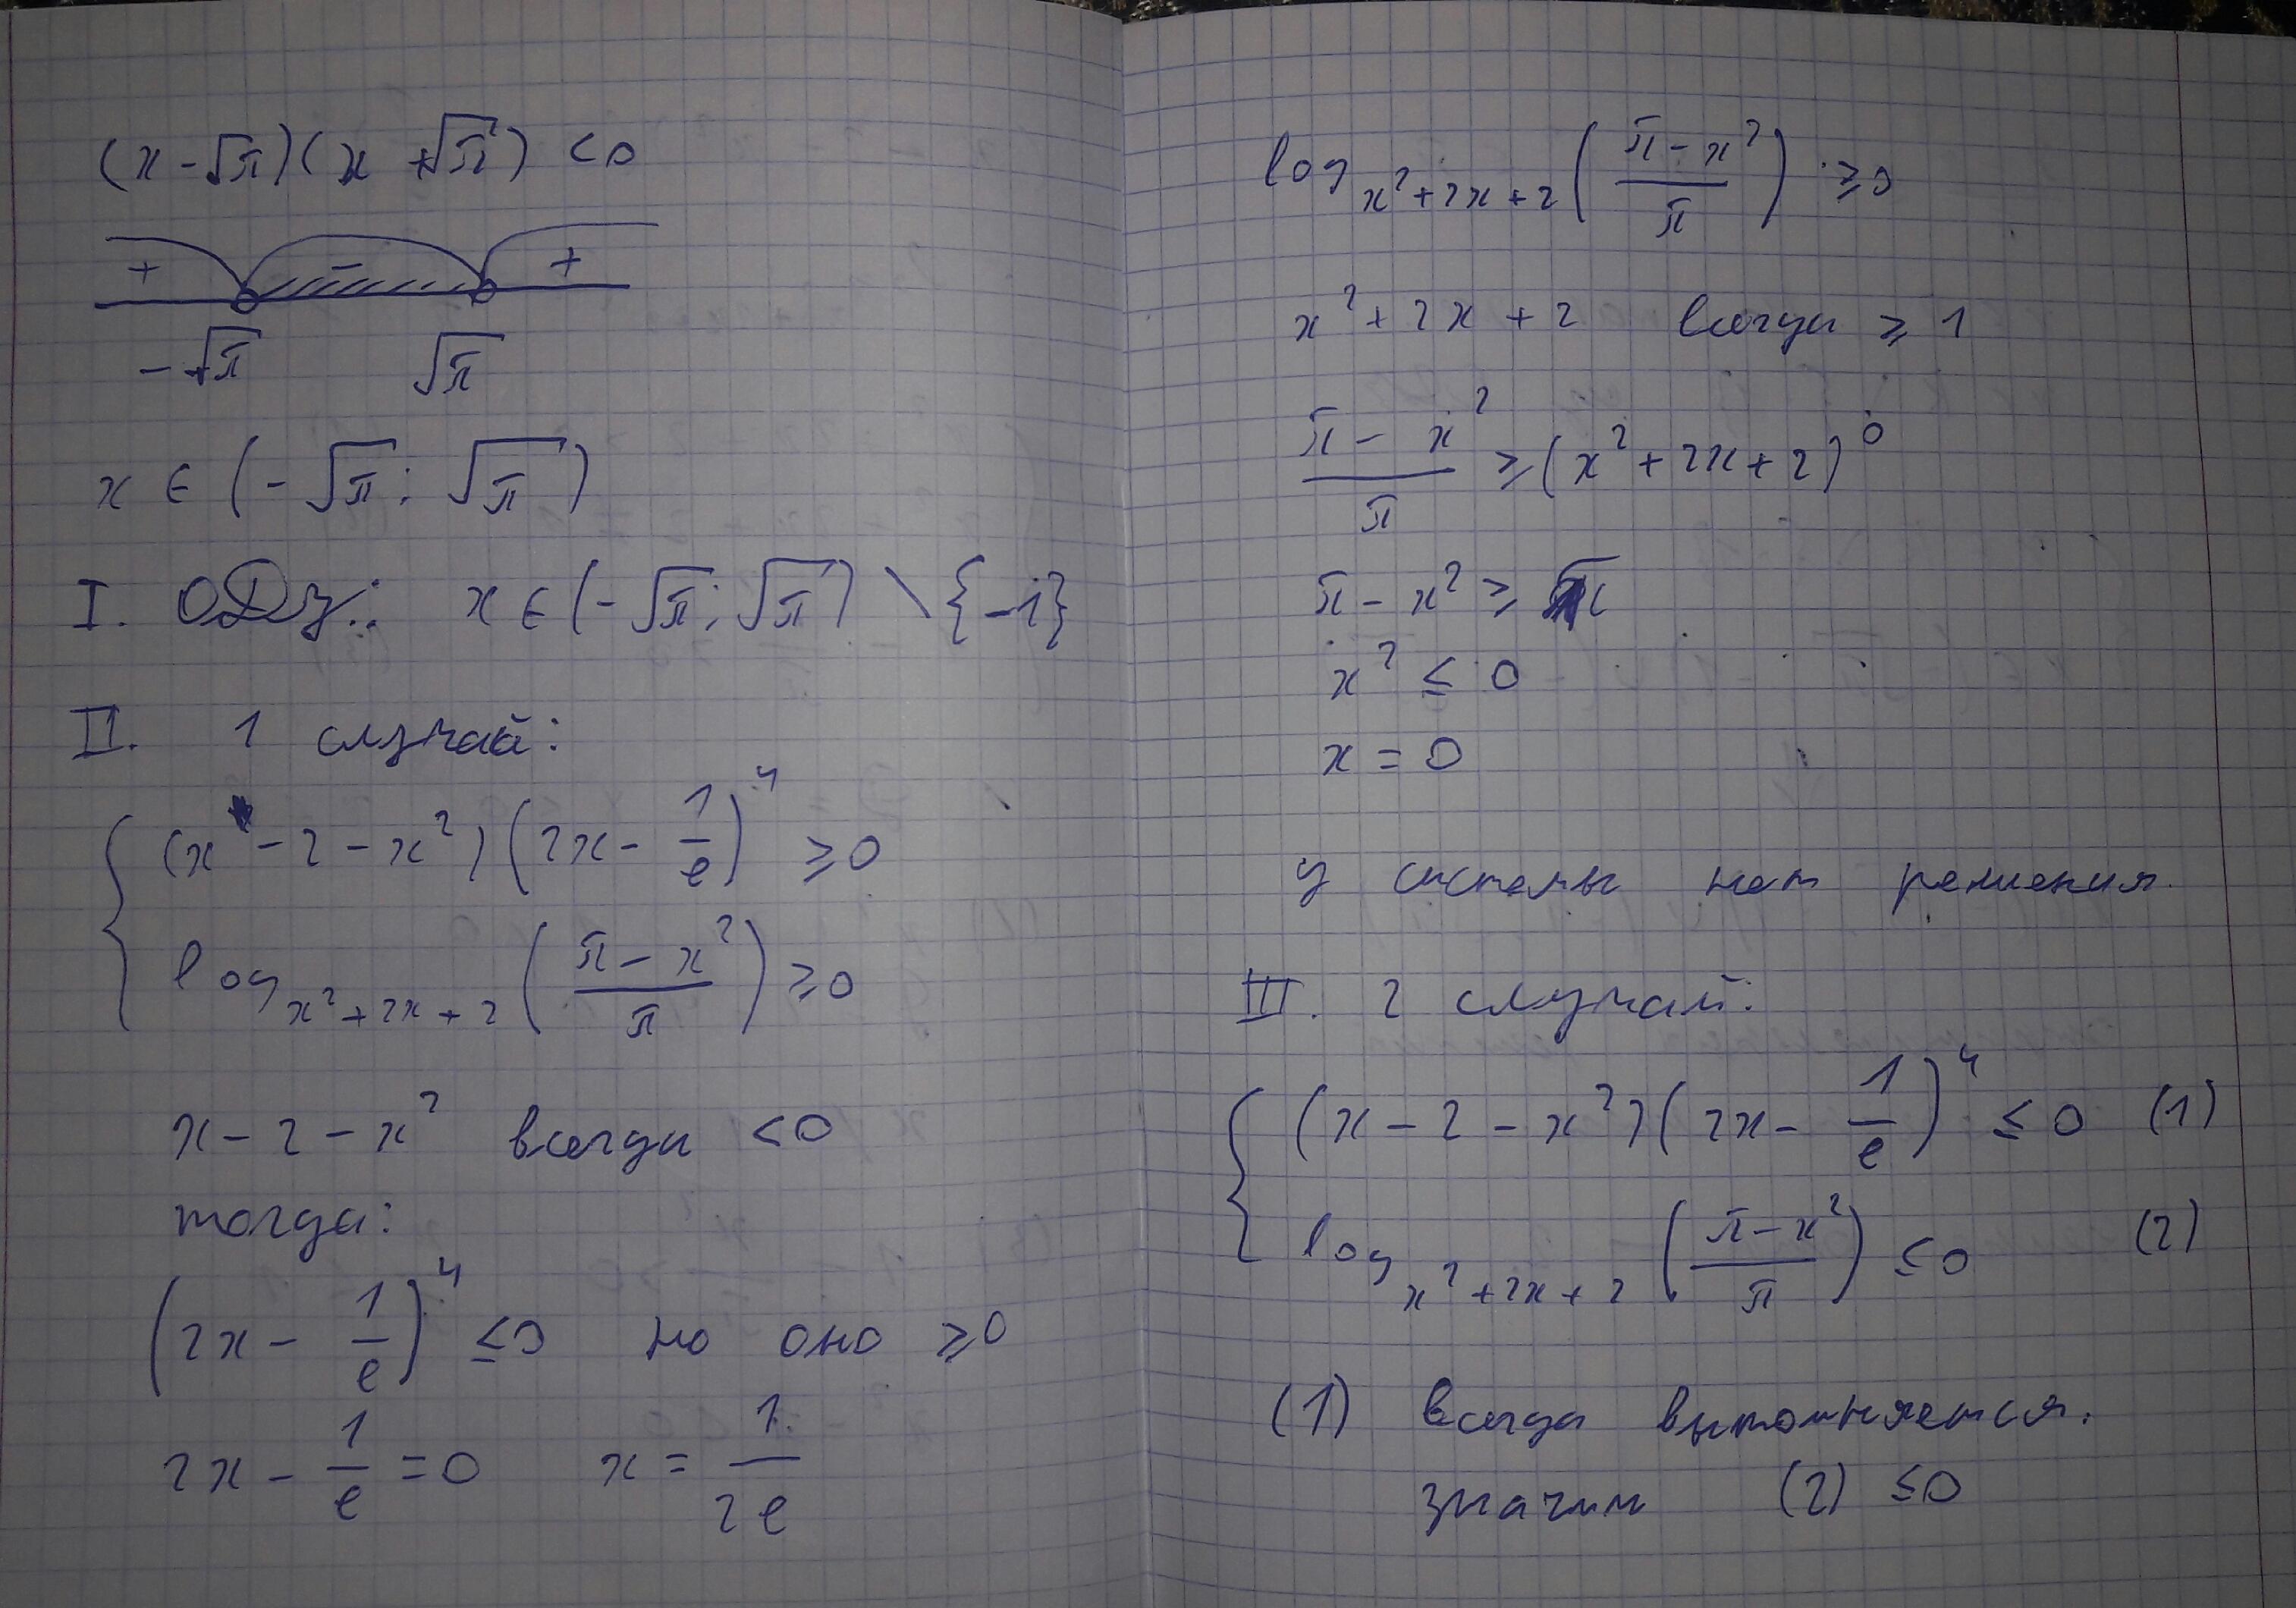 (x-√π)(x+√π) <0
+ - +
-√π √π
x ∈ (-√π; √π)
I. ОДЗ: x ∈ (-√π; √π) \ {-1}
II. 1 случай:
(x - 2 - x²)(2x - 1/e)⁴ ≥0
log_{x²+2x+2} ((π - x²)/π) ≥0
x - 2 - x² всегда <0
тогда:
(2x - 1/e)⁴ ≤0 но оно ≥0
2x - 1/e = 0 x = 1/2e
log_{x²+2x+2} ((π - x²)/π) ≥0
x² + 2x + 2 всегда ≥ 1
(π - x²)/π ≥ (x² + 2x + 2)⁰
π - x² ≥ π
x² ≤ 0
x = 0
у системы нет решения.
III. 2 случай:
(x - 2 - x²)(2x - 1/e)⁴ ≤ 0 (1)
log_{x²+2x+2} ((π - x²)/π) ≤0 (2)
(1) всегда выполняется.
значит (2) ≤0